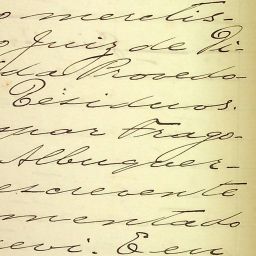 o meretis-
o Juiz de Di-
da Provedo-
Residuos.
mar Frago-
Albuquer-
escrevente
mentado
evi. E eu